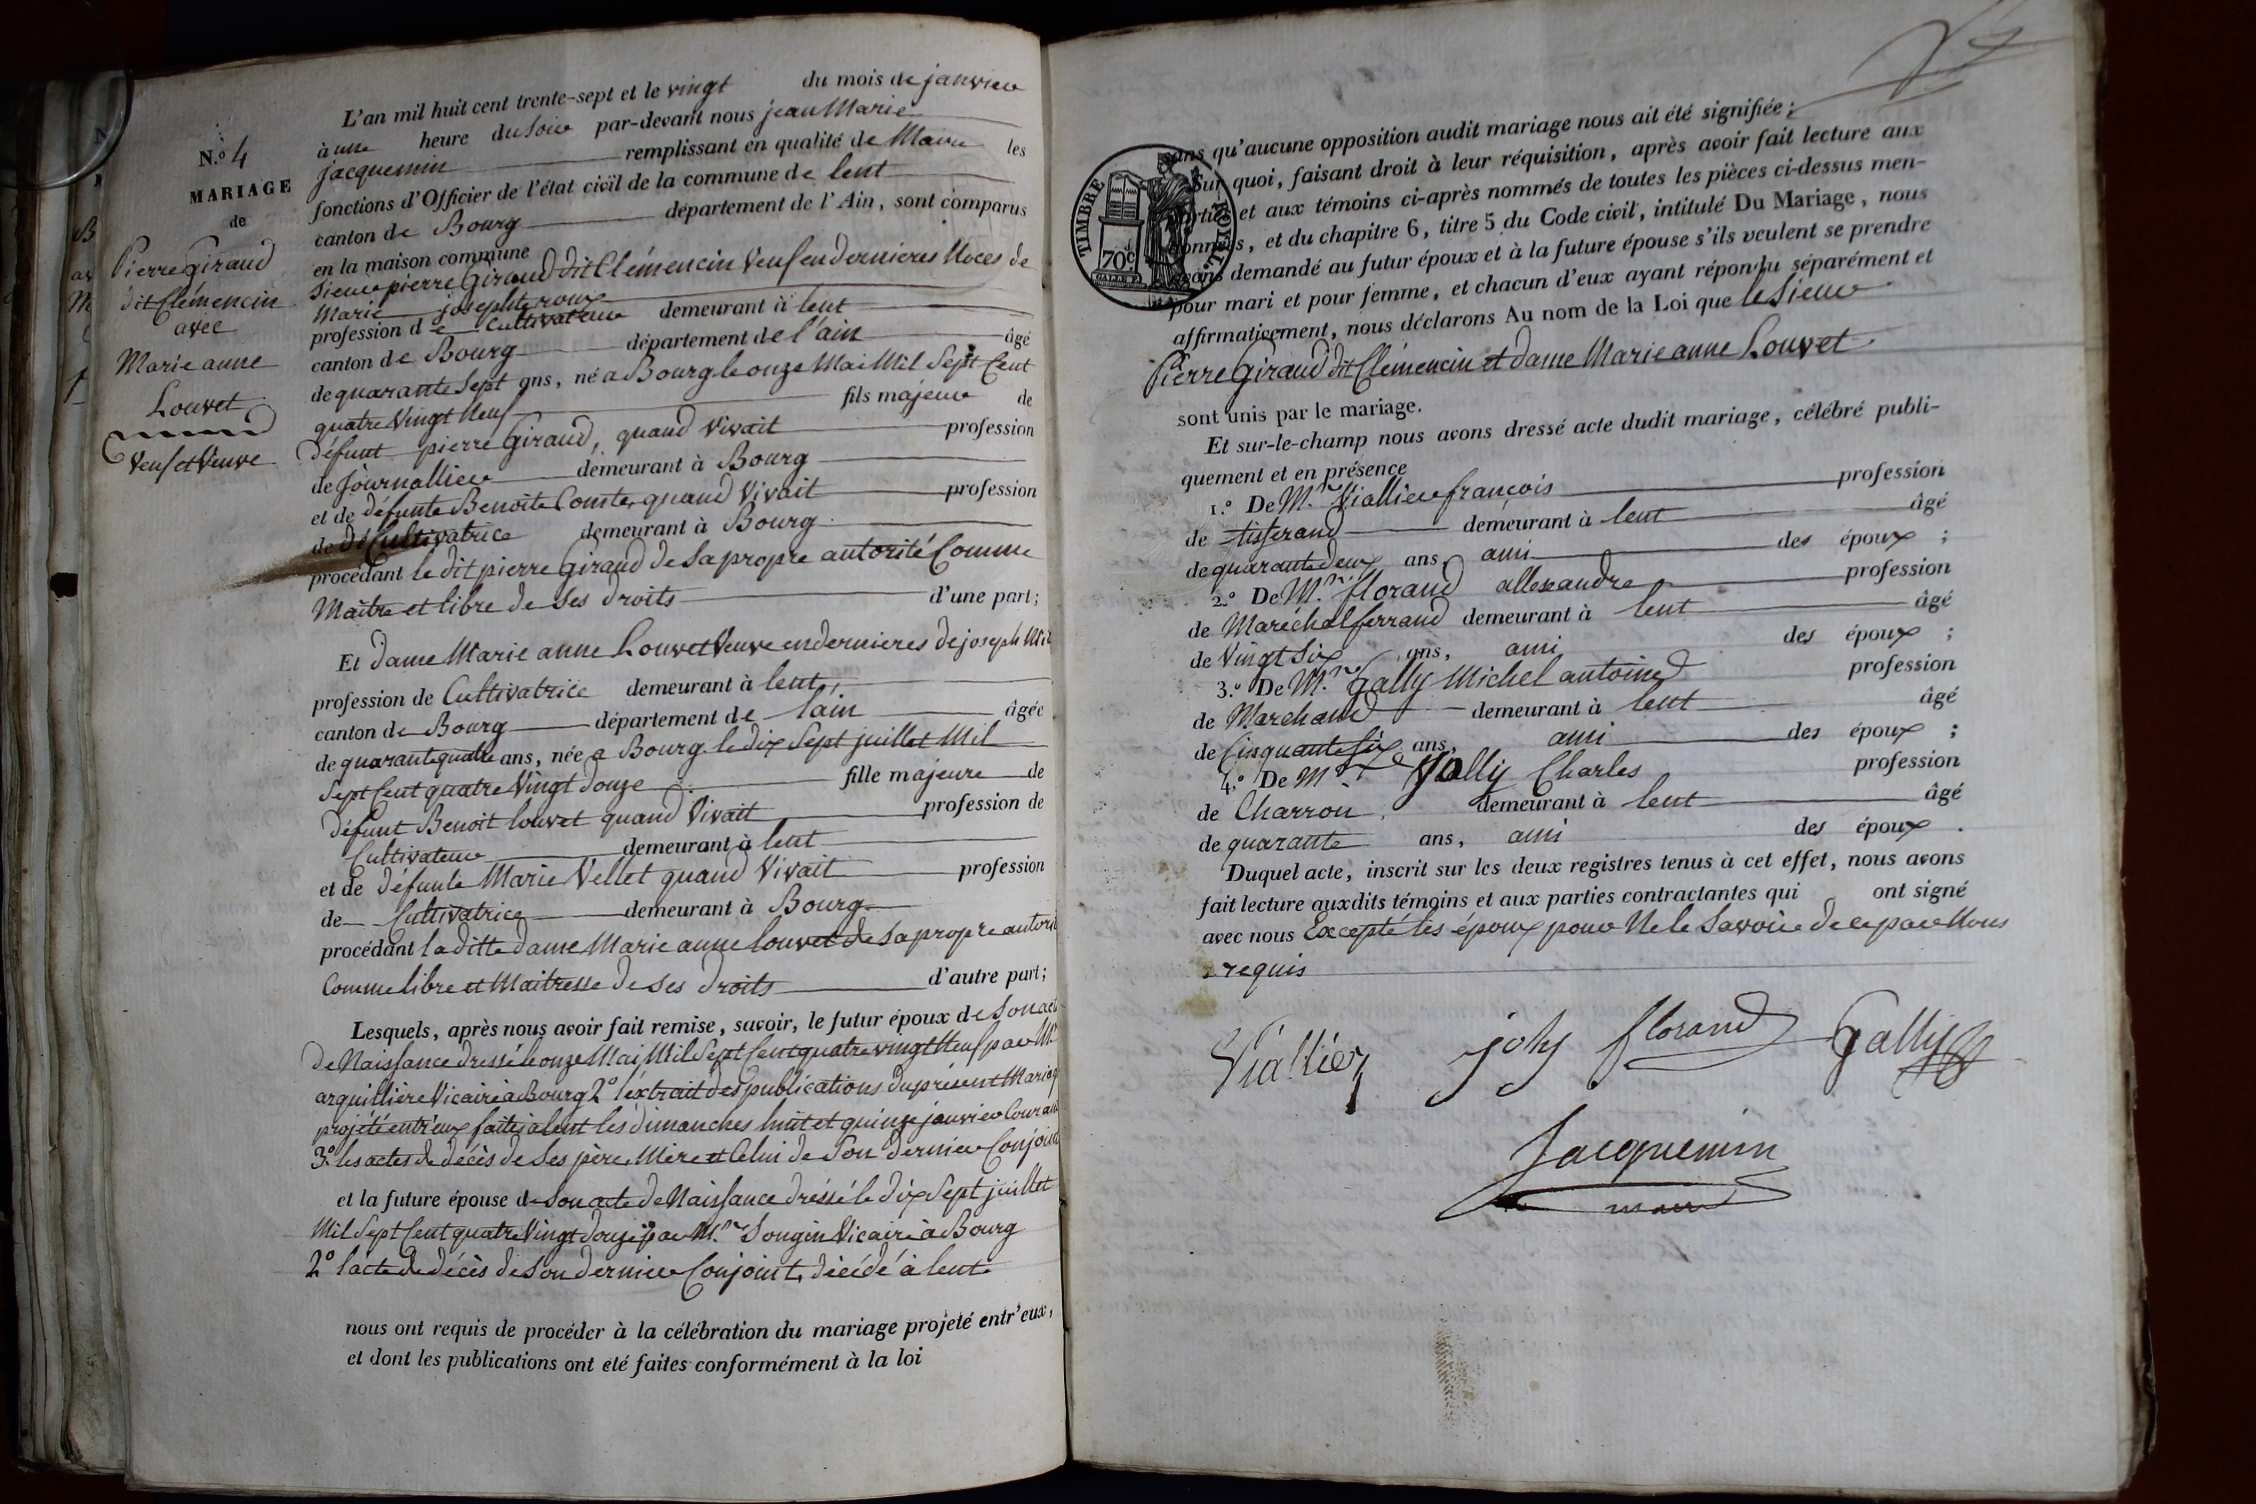 N.º 4
MARIAGE
de
Pierre Giraud
dit Clémencin
avec
Marie anne
Louvet
Veuf et Veuve
L'an mil huit cent trente-sept et le vingt du mois de janvier
à une heure du Soir par-devant nous jean Marie
jacquemin remplissant en qualité de Maire les
fonctions d'Officier de l'état civil de la commune de lent
canton de Bourg département de l'Ain, sont comparus
en la maison commune
Sieur pierre Giraud dit Clémencin Veuf en dernieres Noces de
Marie josephte roux
profession de Cultivateur demeurant à lent
canton de Bourg département de l'ain âgé
de quarante Sept ans, né a Bourg le onze Mai Mil Sept Cent
quatre Vingt Neuf fils majeur de
défunt pierre Giraud, quand Vivait profession
de Journallier demeurant à Bourg
et de défunte Benoite Comte, quand Vivait profession
de Cultivatrice demeurant à Bourg
procédant le dit pierre Giraud de Sa propre autorité Comme
Maître et libre de Ses droits d'une part;
Et dame Marie anne Louvet Veuve en dernieres de joseph
profession de Cultivatrice demeurant à lent,
canton de Bourg département de lain âgée
de quarante quatre ans, née a Bourg le dix Sept juillet Mil
Sept Cent quatre Vingt douze fille majeure de
défunt Benoit louvet quand Vivait profession de
Cultivateur demeurant à lent
et de défunte Marie Vellet quand Vivait profession
de Cultivatrice demeurant à Bourg
procédant la ditte dame Marie anne louvet de Sa propre autorit
Comme libre et Maitresse de Ses droits d'autre part;
Lesquels, après nous avoir fait remise, savoir, le futur époux de Son act
de Naissance dressé le onze Mai Mil Sept Cent quatre vingt Neuf par Mr
arquillière Vicaire à Bourg 2º l'extrait des publications du présent Mariag
projété entr'eux faites a lent les dimanches huit et quinze janvier Couran
3º les actes de décès de Ses père, Mère et Celui de Son dernier Conjoint
et la future épouse de Son acte de Naissance dréssé le dix Sept juillet
Mil Sept Cent quatre Vingt douze par Mr. Vicaire à Bourg
2º l'acte de décès de Son dernier Conjoint, décédé à lent
nous ont requis de procéder à la célébration du mariage projeté entr'eux,
et dont les publications ont été faites conformément à la loi
TIMBRE ROYAL
70c
sans qu'aucune opposition audit mariage nous ait été signifiée;
Sur quoi, faisant droit à leur réquisition, après avoir fait lecture aux
parties et aux témoins ci-après nommés de toutes les pièces ci-dessus men-
tionnées, et du chapitre 6, titre 5 du Code civil, intitulé Du Mariage, nous
avons demandé au futur époux et à la future épouse s'ils veulent se prendre
pour mari et pour femme, et chacun d'eux ayant répondu séparément et
affirmativement, nous déclarons Au nom de la Loi que le Sieur
Pierre Giraud dit Clémencin et dame Marie anne Louvet
sont unis par le mariage.
Et sur-le-champ nous avons dressé acte dudit mariage, célébré publi-
quement et en présence
1.º De Mr. Viallier françois profession
de tisserand demeurant à lent âgé
de quarante deux ans ami des époux ;
2.º De Mr. florand allexandre profession
de Maréchal ferrand demeurant à lent âgé
de Vingt Six ans, ami des époux ;
3.º De Mr. Gally Michel antoine profession
de Marchand demeurant à lent âgé
de Cinquante Six ans, ami des époux ;
4.º De Mr. Jolly Charles profession
de Charron demeurant à lent âgé
de quarante ans, ami des époux .
Duquel acte, inscrit sur les deux registres tenus à cet effet, nous avons
fait lecture auxdits témoins et aux parties contractantes qui ont signé
avec nous Excepté les époux pour Ne le Savoir de ce par Nous
requis
Viallier joly florand Gally
Jacquemin
maire